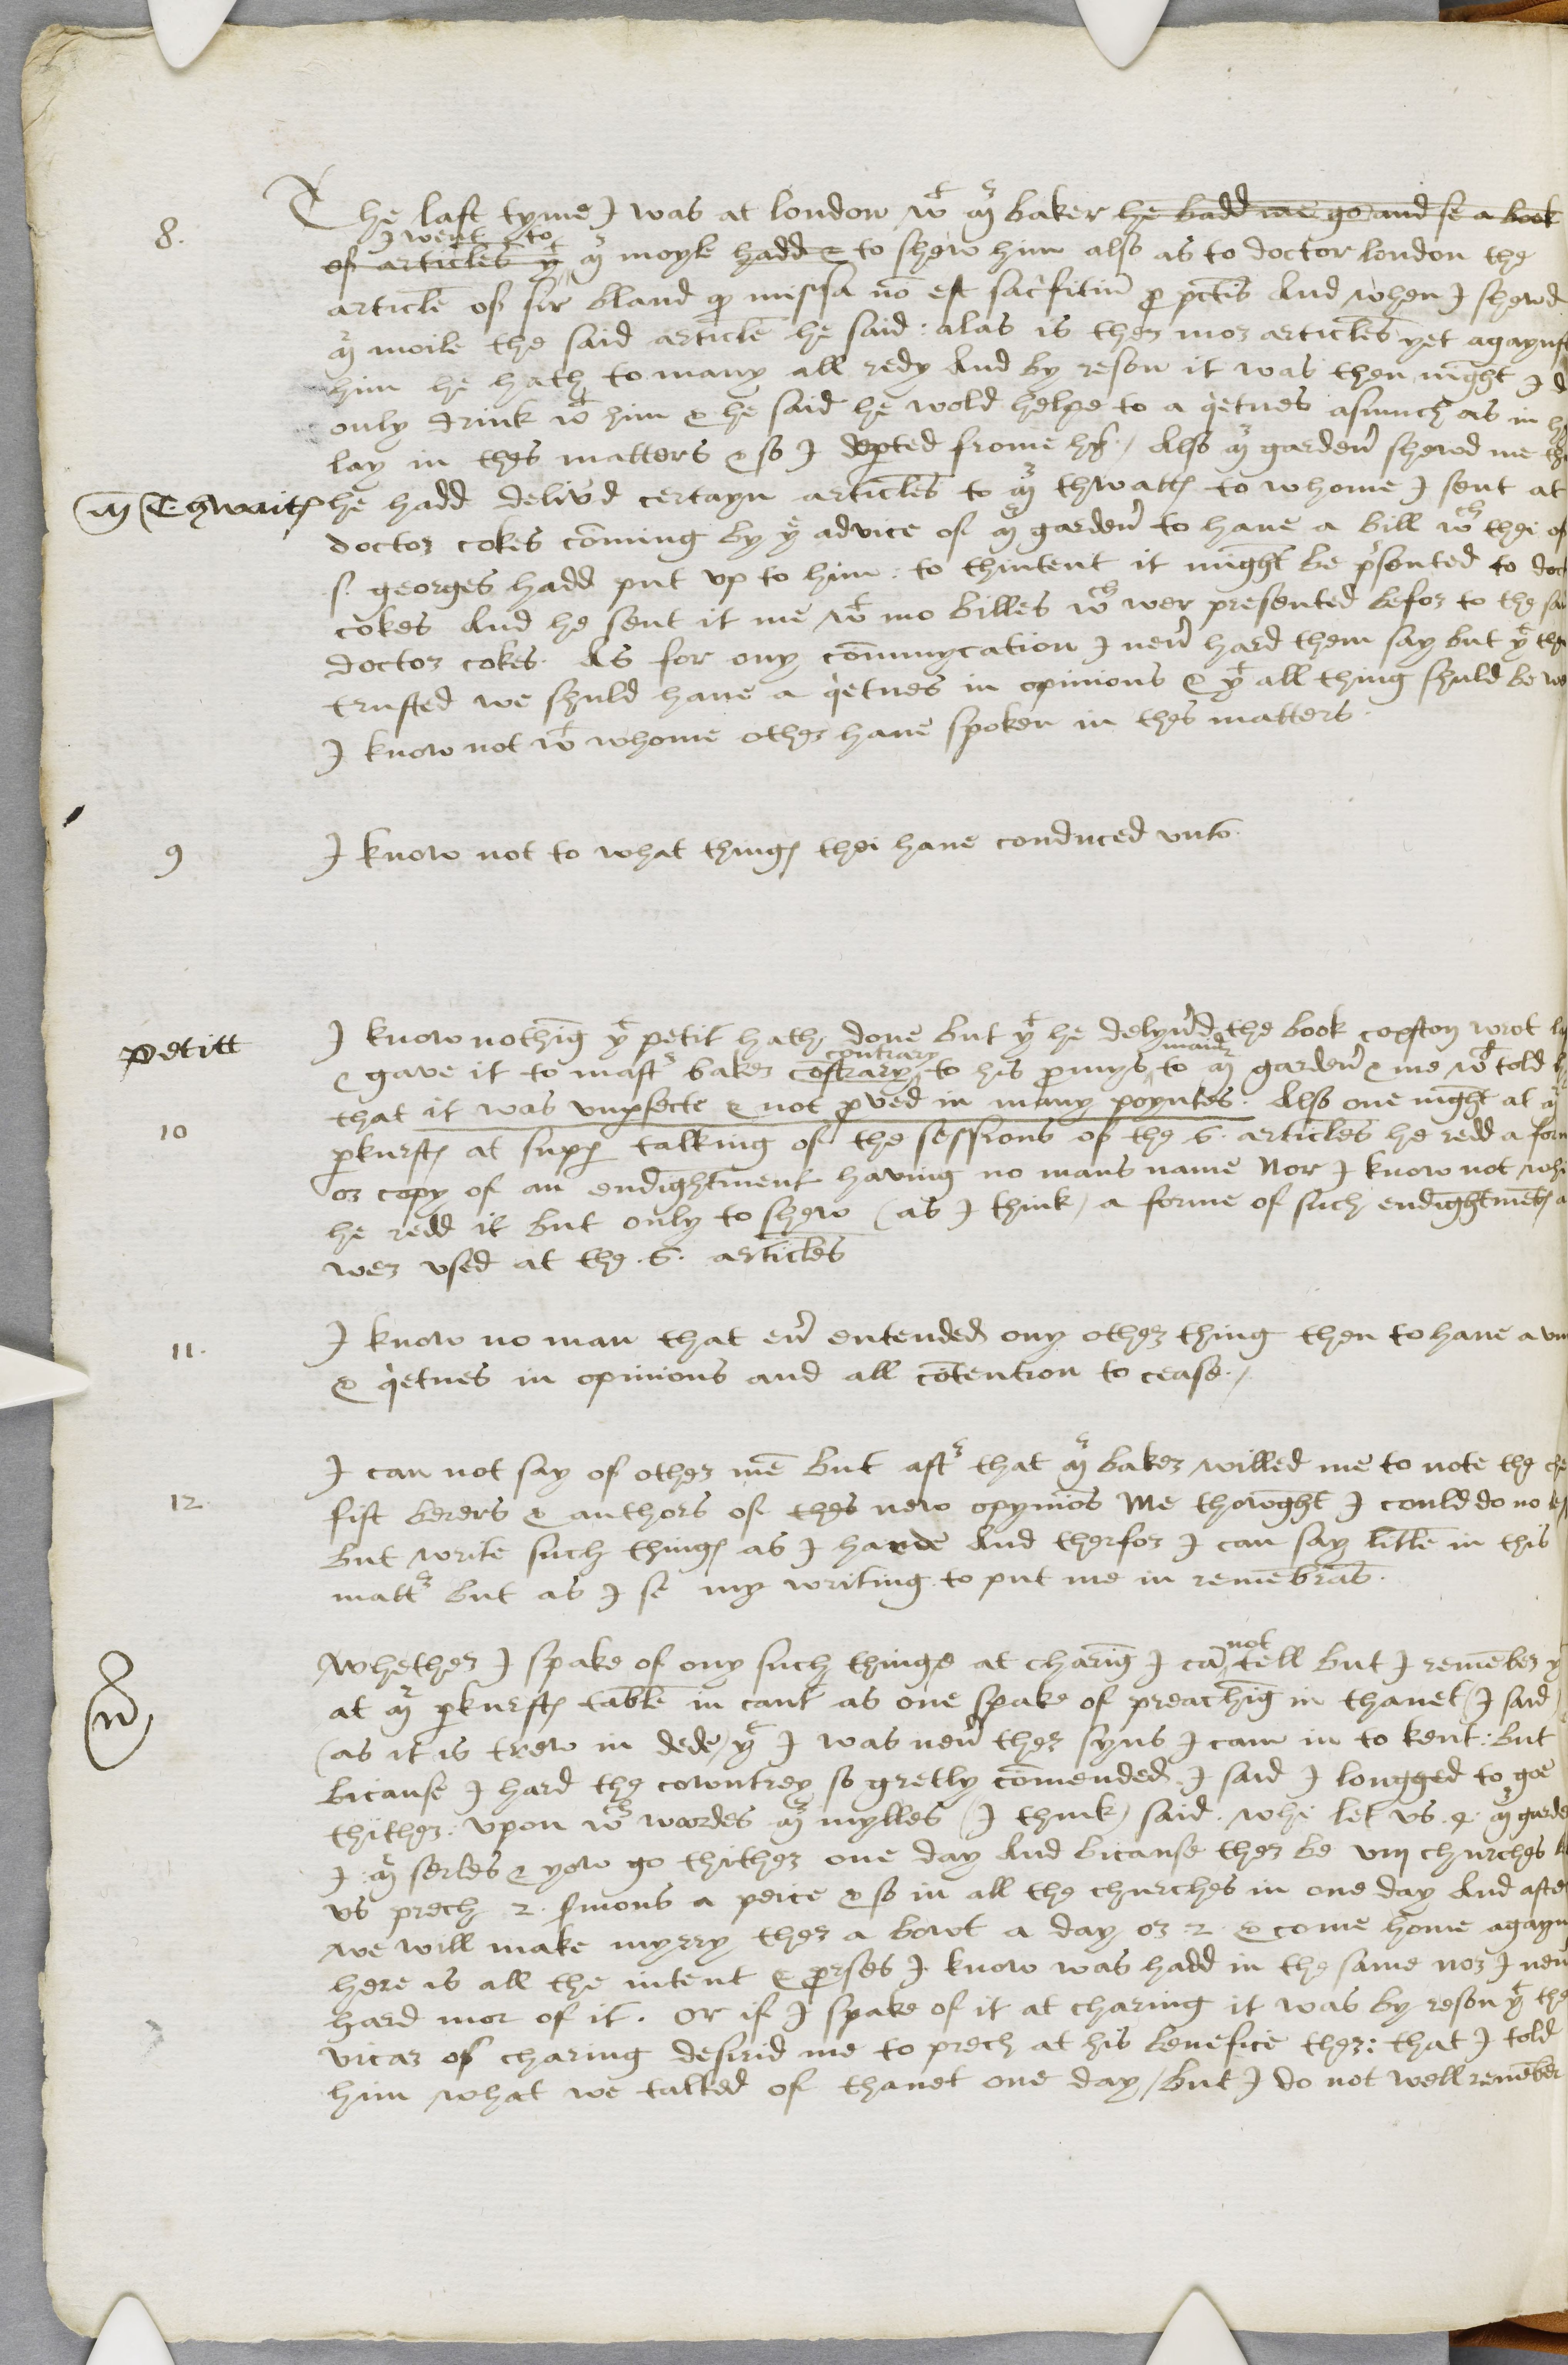 8.
The last tyme I was at london wt mr baker he badd me go and se a book
I went to
of articles yt mr moyle hadd & to shew him also as to doctor london the
article of sir bland qp missa nō est sac'fitiū p pctis And when I shewd
mr moile the said article he said: alas is ther mor articles yet agaynst
him he hath to many all redy And by reson it was then night I d
only drink wt him & he said he wold helpe to a q'etnes asmuch as in h
lay in thes matters & so I depted frome hī / Also mr garden' shewd me th
mr Thwaites
he hadd deliv'd certayn articles to mr thwaites to whome I sent at
doctor cokes cōming by ye advice of mr garden' to haue a bill wch thei of
s. georges hadd put vp to him: to thintent it might be p'sented to doc
cokes And he sent it me wt mo billes wch wer presented befor to the sa
doctor cokes. As for ony cōmunycation I neu' hard them say but yt the
trusted we shuld haue a q'etnes in opinions & yt all thing shuld be we
I know not wt whome other haue spoken in thes matters.
9
I know not to what things thei haue conduced vnto.
petitt
I know nothīg yt petit hath done but yt he delyu'd the book coxston wrot
contrary made
& gave it to mastr baker contrary to his pmys to mr garden' & me wt told
that it was vnpfecte & not pved in many poyntes. Also one night at mr
10
pkursts at supp talking of the sessions of the 6. articles he redd a form
or copy of an endightment having no mans name Nor I know not whi
he redd it but only to shew (as I think) a forme of such endightmēts a
wer vsed at the .6. articles
11.
I know no man that eu' entended ony other thing then to haue a vn
& q'etnes in opinions and all cōtention to cease./
12.
I can not say of other mē but aftr that mr baker willed me to note the che
fist berers & authors of thes new opyniōs Me thowght I could do no less
but write such things as I harde And therfor I can say litle in this
mattr but as I se my writing to put me in remēbrās.
Whether I spake of ony such thinge at charīg I cā not tell But I remēber y
at mr pkursts table in cant as one spake of preachīg in thanet (I said)
(as it is trew in dede) yt I was neu' ther syns I cam in to kent: But
bicause I hard the cowntrey so gretly cōmended I said I longged to goe
thither: vpon wch wordes mr mylles (I think) said. whi let vs. 4. mr garde
I. mr serles & yow go thither one day And bicause ther be viij churches
vs prech 2. s'mons a peice & so in all the churches in one day And after
we will make myrry ther a bowt a day or 2. & come home agayn
here is all the intent & p'poses I know was hadd in the same nor I neu'
hard mor of it. Or if I spake of it at charing it was by reson yt the
vicar of charing desirid me to prech at his benefice ther: that I told
him what we talked of thanet one day / but I do not well remēber